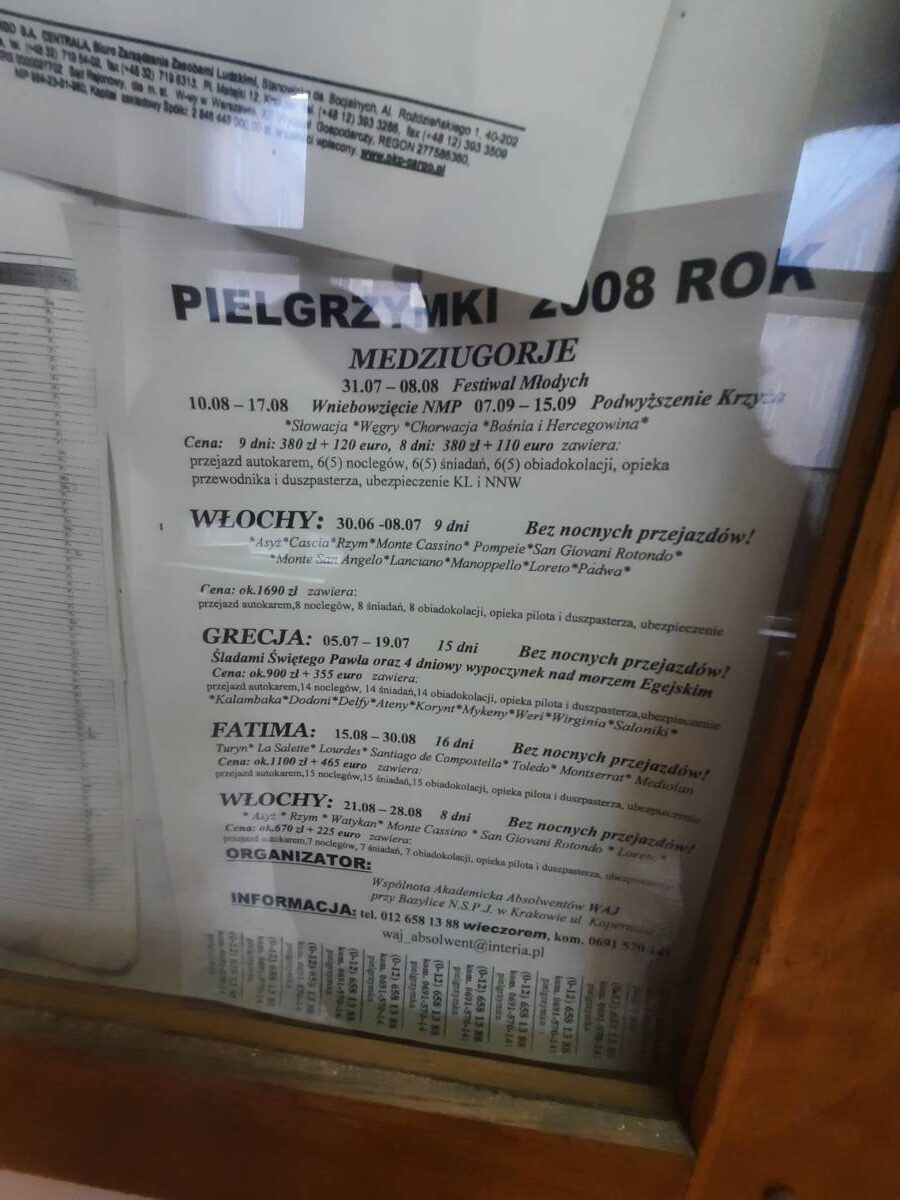 S.A. CENTRALA, Biuro Zarządzania Zasobami Ludzkimi, Stanowisko ds. Socjalnych, Al. Roździeńskiego 1, 40-202
tel. (+48 32) 719 54-02, fax (+48 32) 719 6313, Pl. Matejki 12, (+48 12) 393 3286, fax (+48 12) 393 3509
Sąd Rejonowy, dla m. st. W-wy w Warszawie, Gospodarczy, REGON 277586360,
Kapitał zakładowy Spółki: wpłacony. www.pkp-cargo.pl
PIELGRZYMKI 2008 ROK
MEDZIUGORJE
31.07 – 08.08 Festiwal Młodych
10.08 – 17.08 Wniebowzięcie NMP 07.09 – 15.09 Podwyższenie Krzyża
*Słowacja *Węgry *Chorwacja *Bośnia i Hercegowina*
Cena: 9 dni: 380 zł + 120 euro, 8 dni: 380 zł + 110 euro zawiera:
przejazd autokarem, 6(5) noclegów, 6(5) śniadań, 6(5) obiadokolacji, opieka
przewodnika i duszpasterza, ubezpieczenie KL i NNW
WŁOCHY: 30.06 -08.07 9 dni Bez nocnych przejazdów!
*Asyż*Cascia*Rzym*Monte Cassino* Pompeie*San Giovani Rotondo*
*Monte San Angelo*Lanciano*Manoppello*Loreto*Padwa*
Cena: ok.1690 zł zawiera:
przejazd autokarem,8 noclegów, 8 śniadań, 8 obiadokolacji, opieka pilota i duszpasterza, ubezpieczenie
GRECJA: 05.07 – 19.07 15 dni Bez nocnych przejazdów!
Śladami Świętego Pawła oraz 4 dniowy wypoczynek nad morzem Egejskim
Cena: ok.900 zł + 355 euro zawiera:
przejazd autokarem,14 noclegów, 14 śniadań,14 obiadokolacji, opieka pilota i duszpasterza,ubezpieczenie
*Kalambaka*Dodoni*Delfy*Ateny*Korynt*Mykeny*Weri*Wirginia*Saloniki*
FATIMA: 15.08 – 30.08 16 dni Bez nocnych przejazdów!
Turyn* La Salette* Lourdes* Santiago de Compostella* Toledo* Montserrat* Mediolan
Cena: ok.1100 zł + 465 euro zawiera:
przejazd autokarem,15 noclegów,15 śniadań,15 obiadokolacji, opieka pilota i duszpasterza, ubezpieczenie
WŁOCHY: 21.08 – 28.08 8 dni Bez nocnych przejazdów!
* Asyż * Rzym * Watykan* Monte Cassino * San Giovani Rotondo * Loreto*
Cena: ok.670 zł + 225 euro zawiera:
przejazd autokarem,7 noclegów, 7 śniadań, 7 obiadokolacji, opieka pilota i duszpasterza, ubezpieczenie
ORGANIZATOR:
Wspólnota Akademicka Absolwentów WAJ
przy Bazylice N.S.P.J. w Krakowie ul Kopernika
INFORMACJA: tel. 012 658 13 88 wieczorem, kom. 0691 570 141
waj_absolwent@interia.pl
(0-12) 658 13 88
kom. 0691-570-14
pielgrzymka
(0-12) 658 13 88
kom. 0691-570-14
pielgrzymka
(0-12) 658 13 88
kom. 0691-570-141
pielgrzymka
(0-12) 658 13 88
kom. 0691-570-141
pielgrzymka
(0-12) 658 13 88
kom. 0691-570-141
pielgrzymka